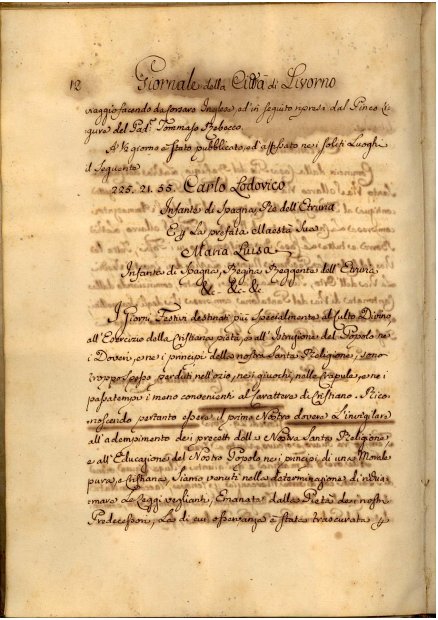 12 Giornale della Città di Livorno
viaggio facendo da Corsaro Inglese, ed in seguito ripresa dal Pinco Li=
gure del Pad.ⁿ Tommaso Rebocco.
A 12 giorno è stato pubblicato, ed affissato nei soliti Luoghi
il Seguente
225. 21. 55. Carlo Lodovico
Infante di Spagna, Rè dell'Etruria
E p La prefata Maestà Sua
Maria Luisa
Infante di Spagna, Regina Reggente dell'Etruria
&c. &c. &c.
I Giorni Festivi destinati più specialmente al Culto Divino
all'Esercizio della Cristiana pietà, e all'Istruzione del Popolo ne
i Doveri, e ne i principi della nostra Santa Religione, sono
troppo spesso perduti nell'ozio, nei giuochi, nella Crapula, e ne i
passatempi i meno convenienti al Carattere di Cristiano. Rico=
noscendo pertanto essere il primo Nostro dovere L'invigilare
all'adempimento dei precetti della Nostra Santa Religione
e all'Educazione del Nostro Popolo nei principi di una Morale
pura, e cristiana, Siamo venuti nella determinazione di richia=
mare Le Leggi veglianti, Emanate dalla Pietà dei nostri
Predecessori, La di cui osservanza è stata trascurata p